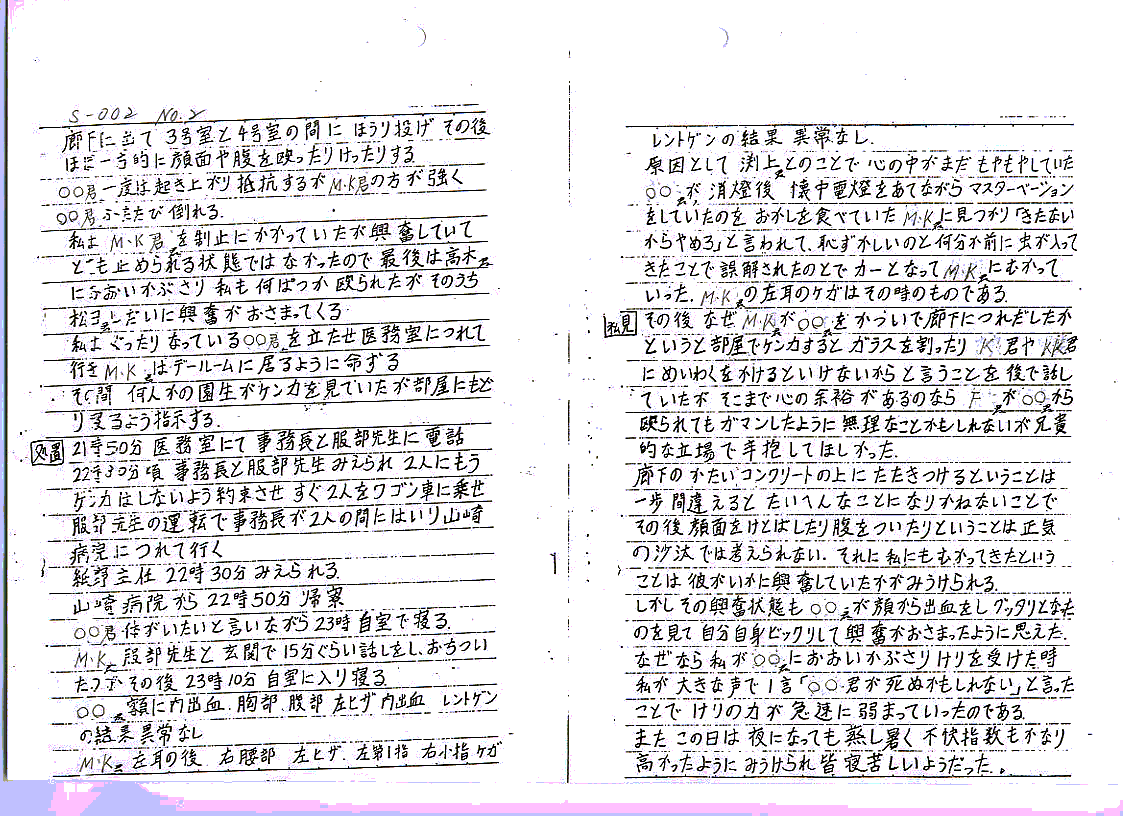 S-002 No.2
廊下に出て 3号室と4号室の間に ほうり投げ その後
ほぼ一方的に顔面や腹を殴ったりけったりする
○○君 一度は起き上がり 抵抗するが M・K君の方が 強く
○○君 ふたたび 倒れる.
私は M・K君 を制止にかかっていたが興奮していて
とても止められる状態ではなかったので 最後は高木
におおいかぶさり 私も 何ぱつか 殴られたが そのうち
しだいに興奮がおさまってくる
私は ぐったり なっている○○君 を立たせ医務室につれて
行き M・K はデールームに居るように命ずる
その間 何人かの園生がケンカを見ていたが部屋にもど
り寝るよう指示する.
処置 21時50分 医務室にて 事務長と服部先生に電話
22時30分頃 事務長と服部先生 みえられ 2人にもう
ケンカはしないよう約束させ すぐ2人をワゴン車に乗せ
服部先生の運転で事務長が2人の間にはいり山崎
病院につれて行く
主任 22時30分 みえられる.
山崎病院から 22時50分 帰寮
○○君 体がいたいと言いながら23時 自室で寝る.
M・K 服部先生と 玄関で15分ぐらい話しをし、おちつい
たのか その後 23時10分 自室に入り寝る
○○ 額に内出血. 胸部. 腹部 左ヒザ 内出血 レントゲン
の結果 異常なし
M・K 左耳の後 右腰部 左ヒザ. 左第1指 右小指 ケガ
レントゲンの結果 異常なし.
原因として 渕上とのことで 心の中がまだ もやもやしていた
○○が 消燈後 懐中電燈をあてながら マスターベーション
をしていたのを おかしを食べていた M・Kに見つかり「きたない
からやめろ」と言われて、恥ずかしいのと何分か前に虫が入って
きたことで誤解されたのとで カーとなって M・K にむかって
いった. M・K の左耳のケガはその時のものである.
私見 その後 なぜ M・Kが ○○ をかついで廊下につれだしたか
というと部屋でケンカすると ガラスを割ったり K 君や KK君
にめいわくをかけるといけないから と言うことを 後で話し
ていたが そこまで心の余裕があるのなら F が ○○から
殴られてもガマンしたように 無理なことかもしれないが兄貴
的な立場で辛抱してほしかった.
廊下のかたいコンクリートの上に たたきつけるということは
一歩間違えると たいへんなことになりかねないことで
その後 顔面をけとばしたり腹をついたりということは 正気
の沙汰では考えられない. それに私にもむかってきたという
ことは 彼がいかに興奮していたかがみうけられる.
しかし その興奮状態も ○○ が顔から出血をし グッタリとなた
のを見て 自分自身ビックリして 興奮がおさまったように思えた.
なぜなら 私が ○○ におおいかぶさり けりを受けた時
私が大きな声で 1言「○○君が死ぬかもしれない」と言った
ことで けりの力が 急速に 弱まっていったのである.
また この日は 夜になっても 蒸し暑く 不快指数もかなり
高かったように みうけられ 皆寝苦しいようだった.